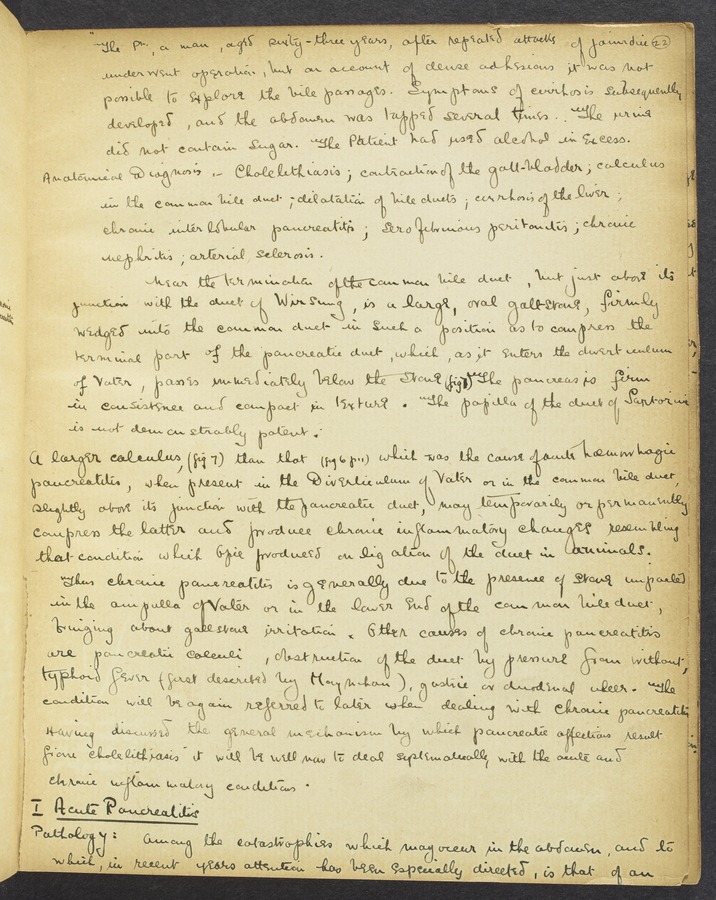 "The Pt., a man, aged sixty-three years, after repeated attacks of jaundice 22
underwent operation, but on account of dense adhesions it was not
possible to explore the bile passages. Symptoms of cirrhosis subsequently
developed, and the abdomen was tapped several times. The urine
did not contain sugar. The Patient had used alcohol in excess.
Anatomical Diagnosis :- Cholelithiasis; contraction of the gall-bladder; calculus
in the common bile duct; dilatation of bile ducts; cirrhosis of the liver;
chronic interlobular pancreatitis; serofibrinous peritonitis; chronic
nephritis; arterial sclerosis.
Near the termination of the common bile duct, but just above its
junction with the duct of Wirsung, is a large, oval gallstone, firmly
wedged into the common duct in such a position as to compress the
terminal part of the pancreatic duct, which, as it enters the diverticulum
of Vater, passes immediately below the stone (fig 7) The pancreas is firm
in consistence and compact in texture. The papilla of the duct of Santorini
is not demonstrably patent.
A larger calculus, (fig 7) than that (fig 6 p 11) which was the cause of acute haemorrhagic
pancreatitis, when present in the Diverticulum of Vater or in the common bile duct,
slightly above its junction with the pancreatic duct, may temporarily or permanently
compress the latter and produce chronic inflammatory changes resembling
that condition which Opie produced on ligation of the duct in animals.
Thus chronic pancreatitis is generally due to the presence of stone impacted
in the ampulla of Vater or in the lower end of the common bile duct,
bringing about gallstone irritation. Other causes of chronic pancreatitis
are pancreatic calculi, obstruction of the duct by pressure from without,
typhoid fever (first described by Moynihan), gastric or duodenal ulcer. The
condition will be again referred to later when dealing with chronic pancreatitis
Having discussed the general mechanism by which pancreatic affections result
from cholelithiasis it will be well now to deal systematically with the acute and
chronic inflammatory conditions.
I Acute Pancreatitis
Pathology: Among the catastrophies which may occur in the abdomen, and to
which, in recent years attention has been especially directed, is that of an